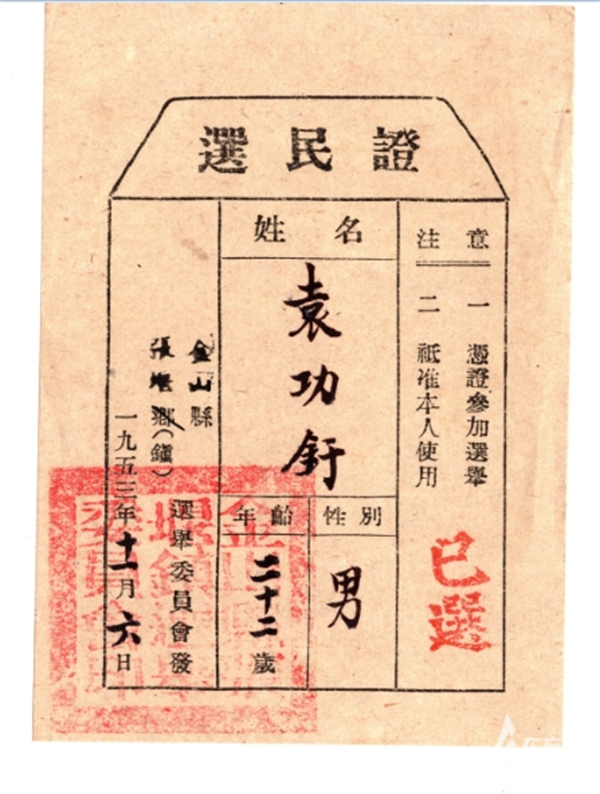 選民證
注意
一 憑證參加選舉
二 祇准本人使用
已選
姓名
袁功釪
性別
男
年齡
二十二歲
金山縣
張堰鄉(鎮)
選舉委員會發
一九五三年十一月六日